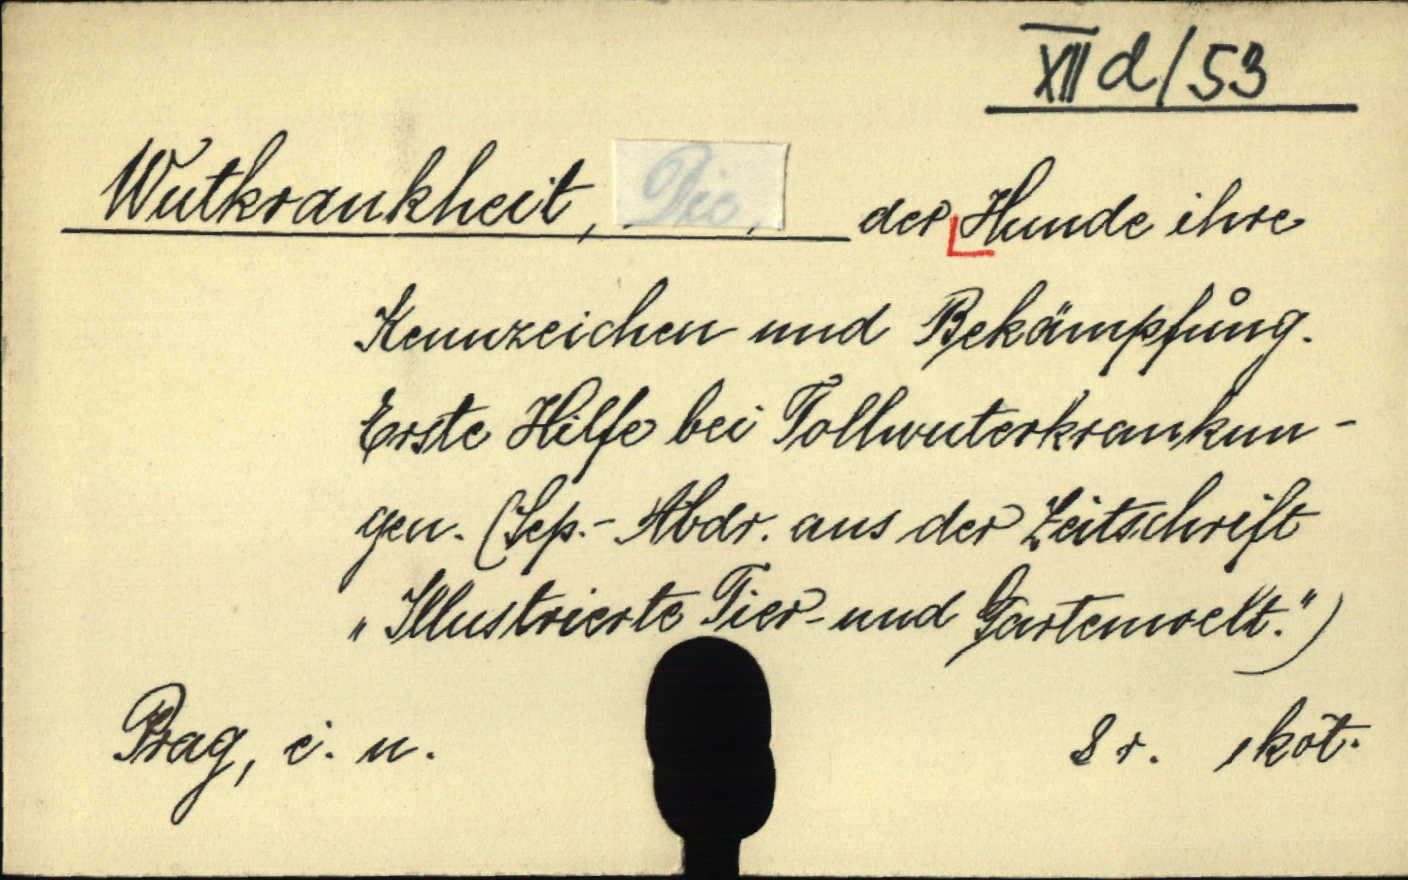 XII d/53
Wutkrankheit, Die, der Hunde ihre
Kennzeichen und Bekämpfůng.
Erste Hilfe bei Tollwuterkrankun-
gen. (Sep.- Abdr. aus der Zeitschrift
„Illustrierte Tier- und Gartenwelt.")
Prag, i. n.
8 r. sköt.